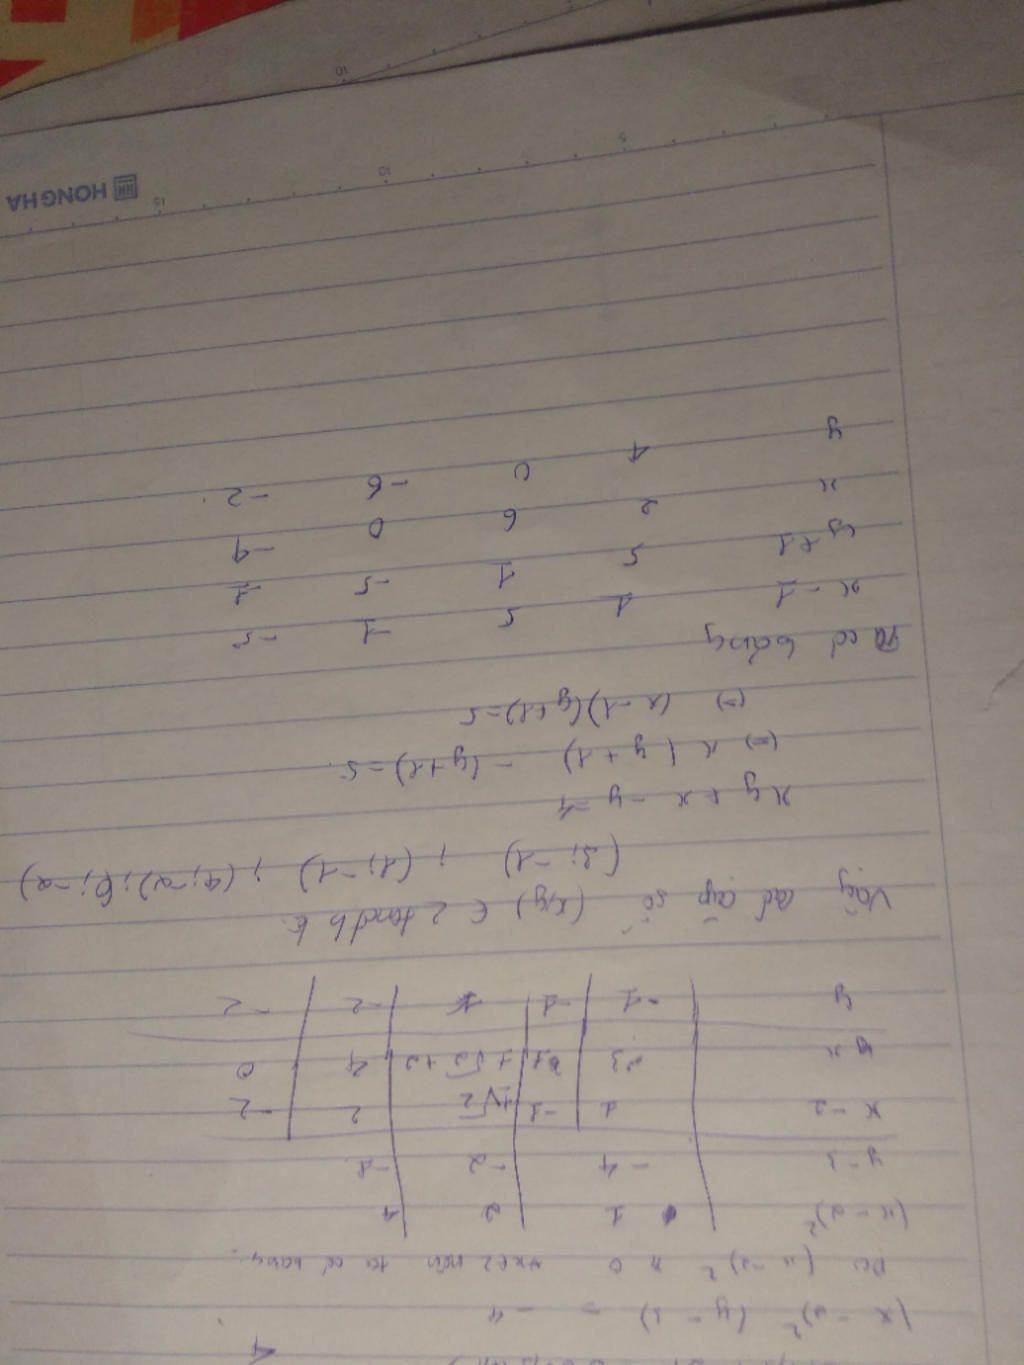 (x - 2)² (y - 3) = - 4
Do (x - 2)² ≥ 0 ∀x∈Z nên ta có bảng
(x - 2)² 1 2 4
y - 3 - 4 - 2 - 1
x - 2 1 - 1 ±√2 2 - 2
x 3 1 ±√2 + 2 4 0
y - 1 - 1 1 - 2 - 2
Vậy có cặp số (x,y) ∈ Z
(3; -1) ; (1; -1) ; (4; -2); (0; -2)
xy + x - y = 4
(=) x (y + 1) - (y + 1) = 5
(=) (x - 1) (y + 1) = 5
Ta có bảng
x - 1 1 5 - 1 - 5
y + 1 5 1 - 5 - 1
x 2 6 0 - 4
y 4 0 - 6 - 2
15 10 5
HONG HA
10